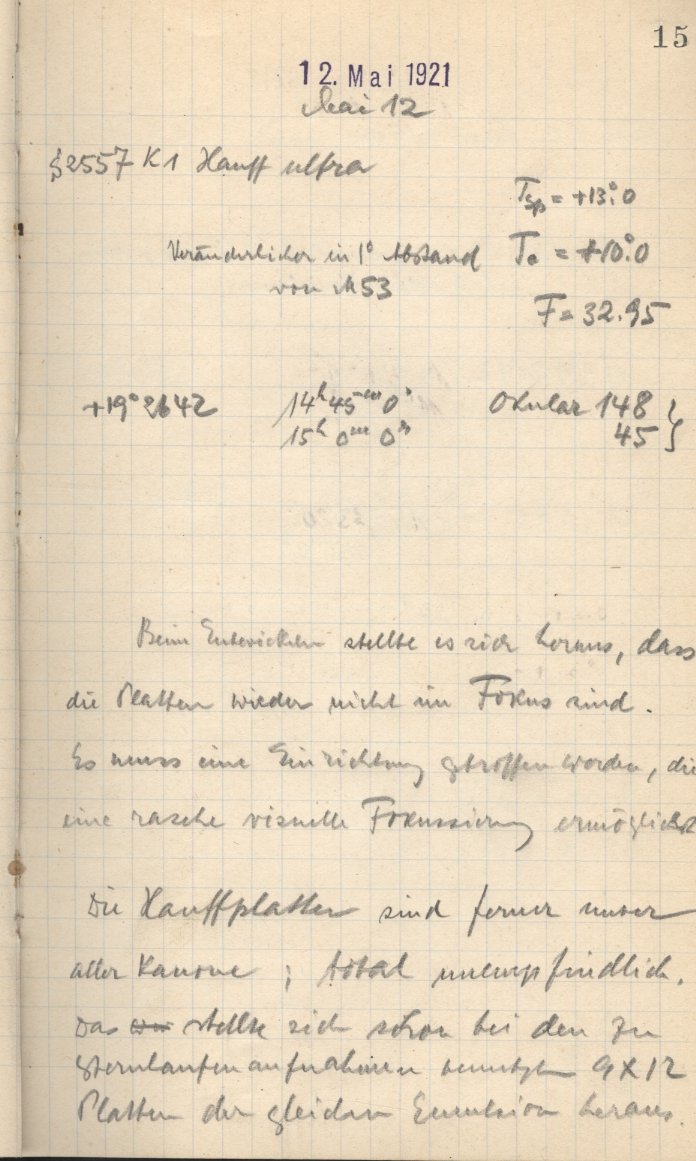 15
12. Mai 1921
Mai 12
2557 K1 Hauff ultra
Tsp = +13°.0
Veränderlicher in 1° Abstand
von M53
= +10°.0
F = 32.95
+19° 2642
14h 45m 0s
15h 0m 0s
Okular 148
45 }
Beim Entwickeln stellte es sich heraus, dass
die Platten wieder nicht im Fokus sind.
Es muss eine Einrichtung getroffen werden, die
eine rasche visuelle Fokussierung ermöglicht
Die Hauffplatten sind ferner unter
aller Kanone; total unempfindlich.
Das stellte sich schon bei den zu
Sternlaufenaufnahmen benutzten 9X12
Platten der gleichen Emulsion heraus.